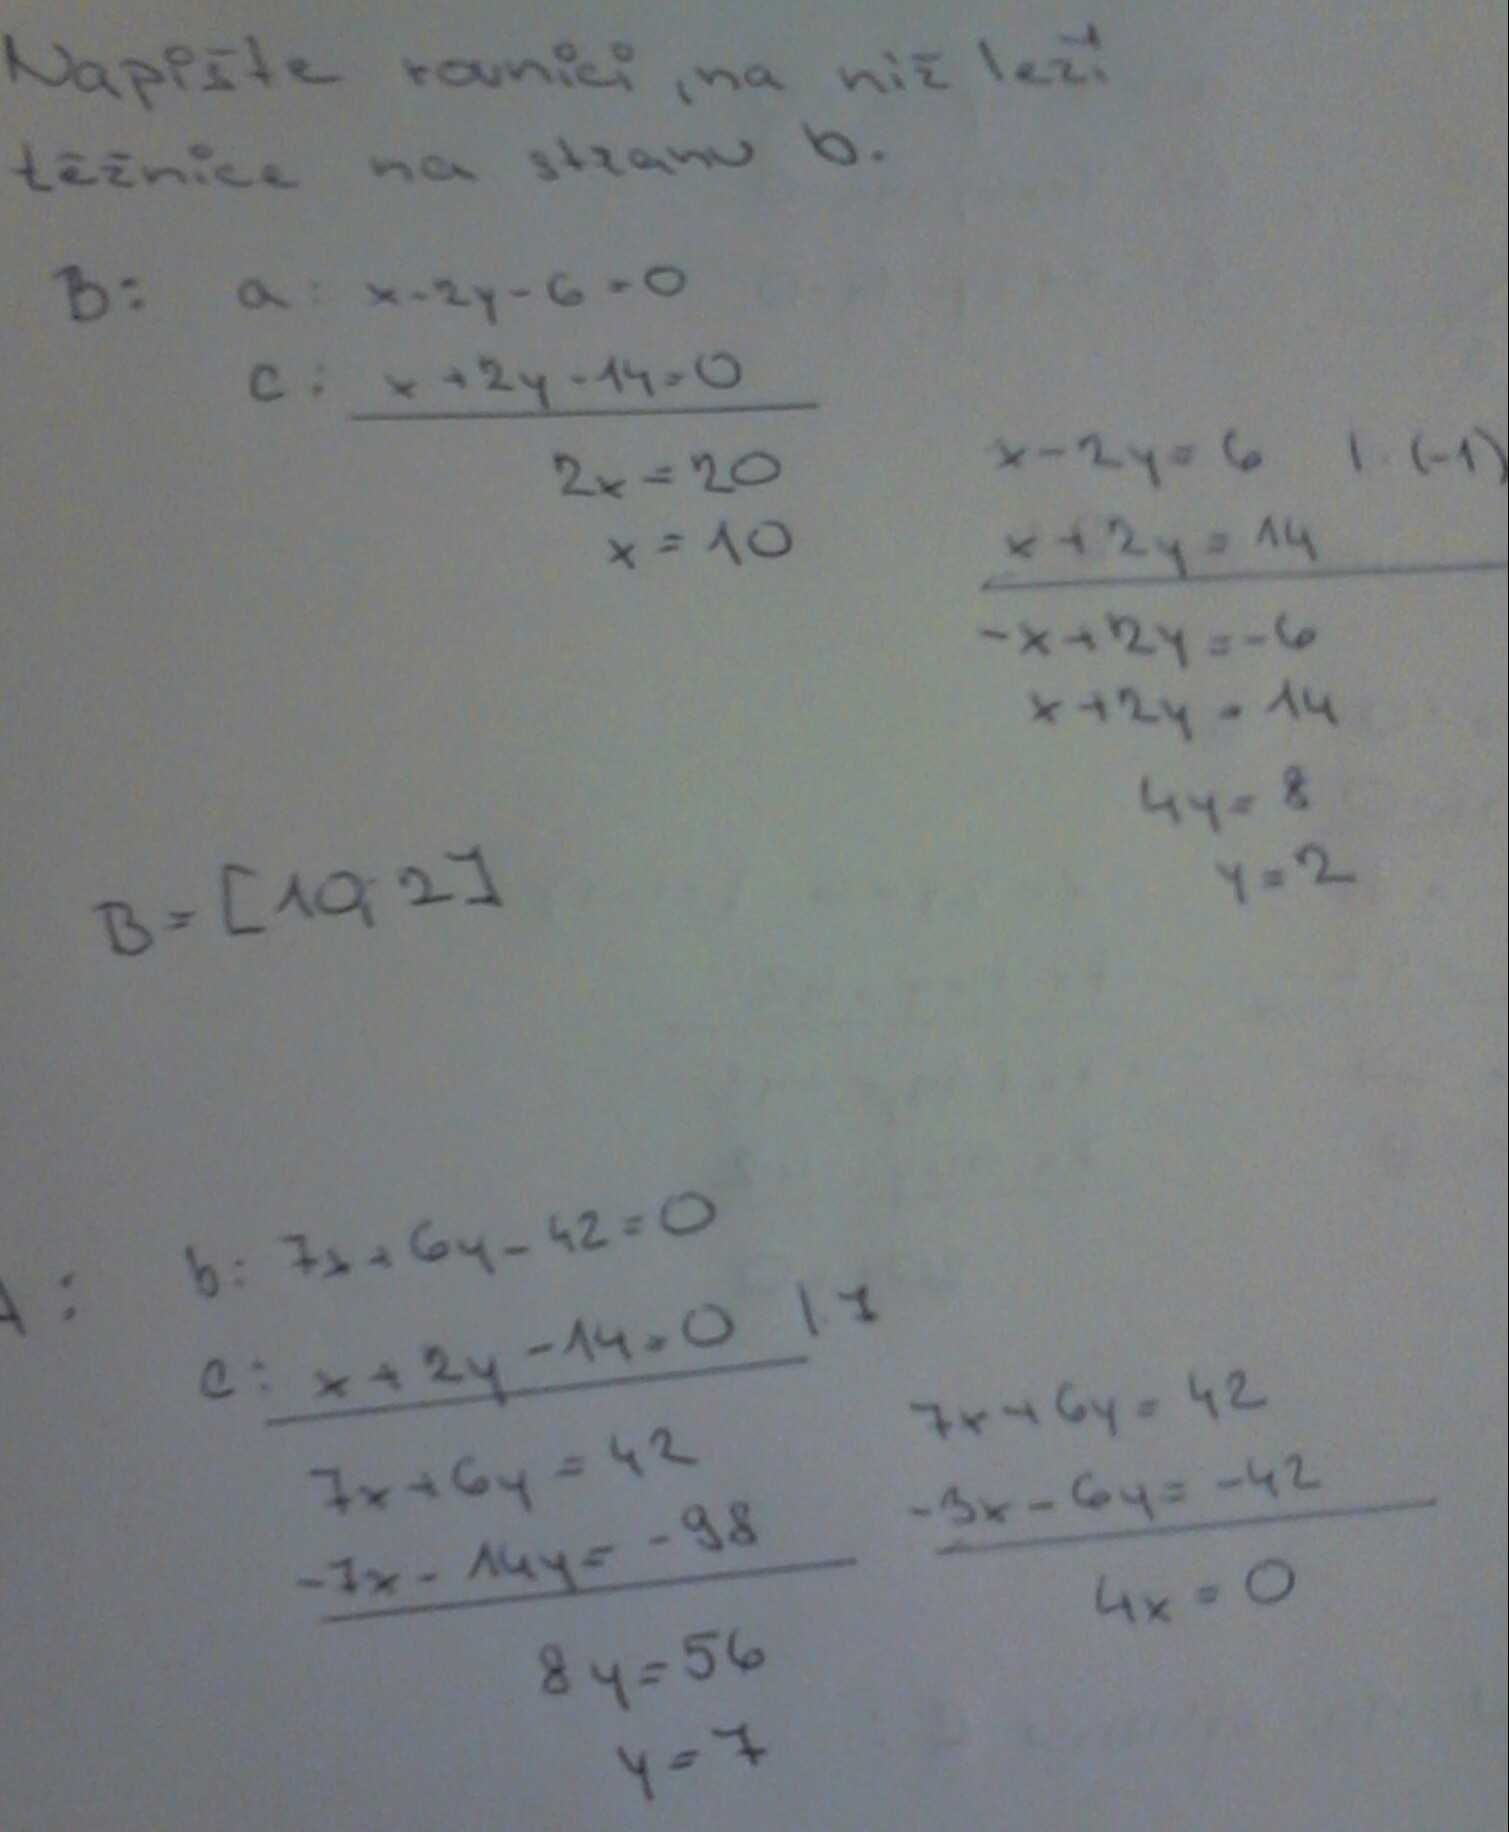 Napište rovnici, na níž leží
těžnice na stranu b.
B: a: x-2y-6=0
c: x+2y-14=0
2x=20
x=10
x-2y=6 |·(-1)
x+2y=14
-x+2y=-6
x+2y=14
4y=8
y=2
B=[10;2]
A: b: 7x+6y-42=0
c: x+2y-14=0 |·7
7x+6y=42
-7x-14y=-98
8y=56
y=7
7x+6y=42
-3x-6y=-42
4x=0